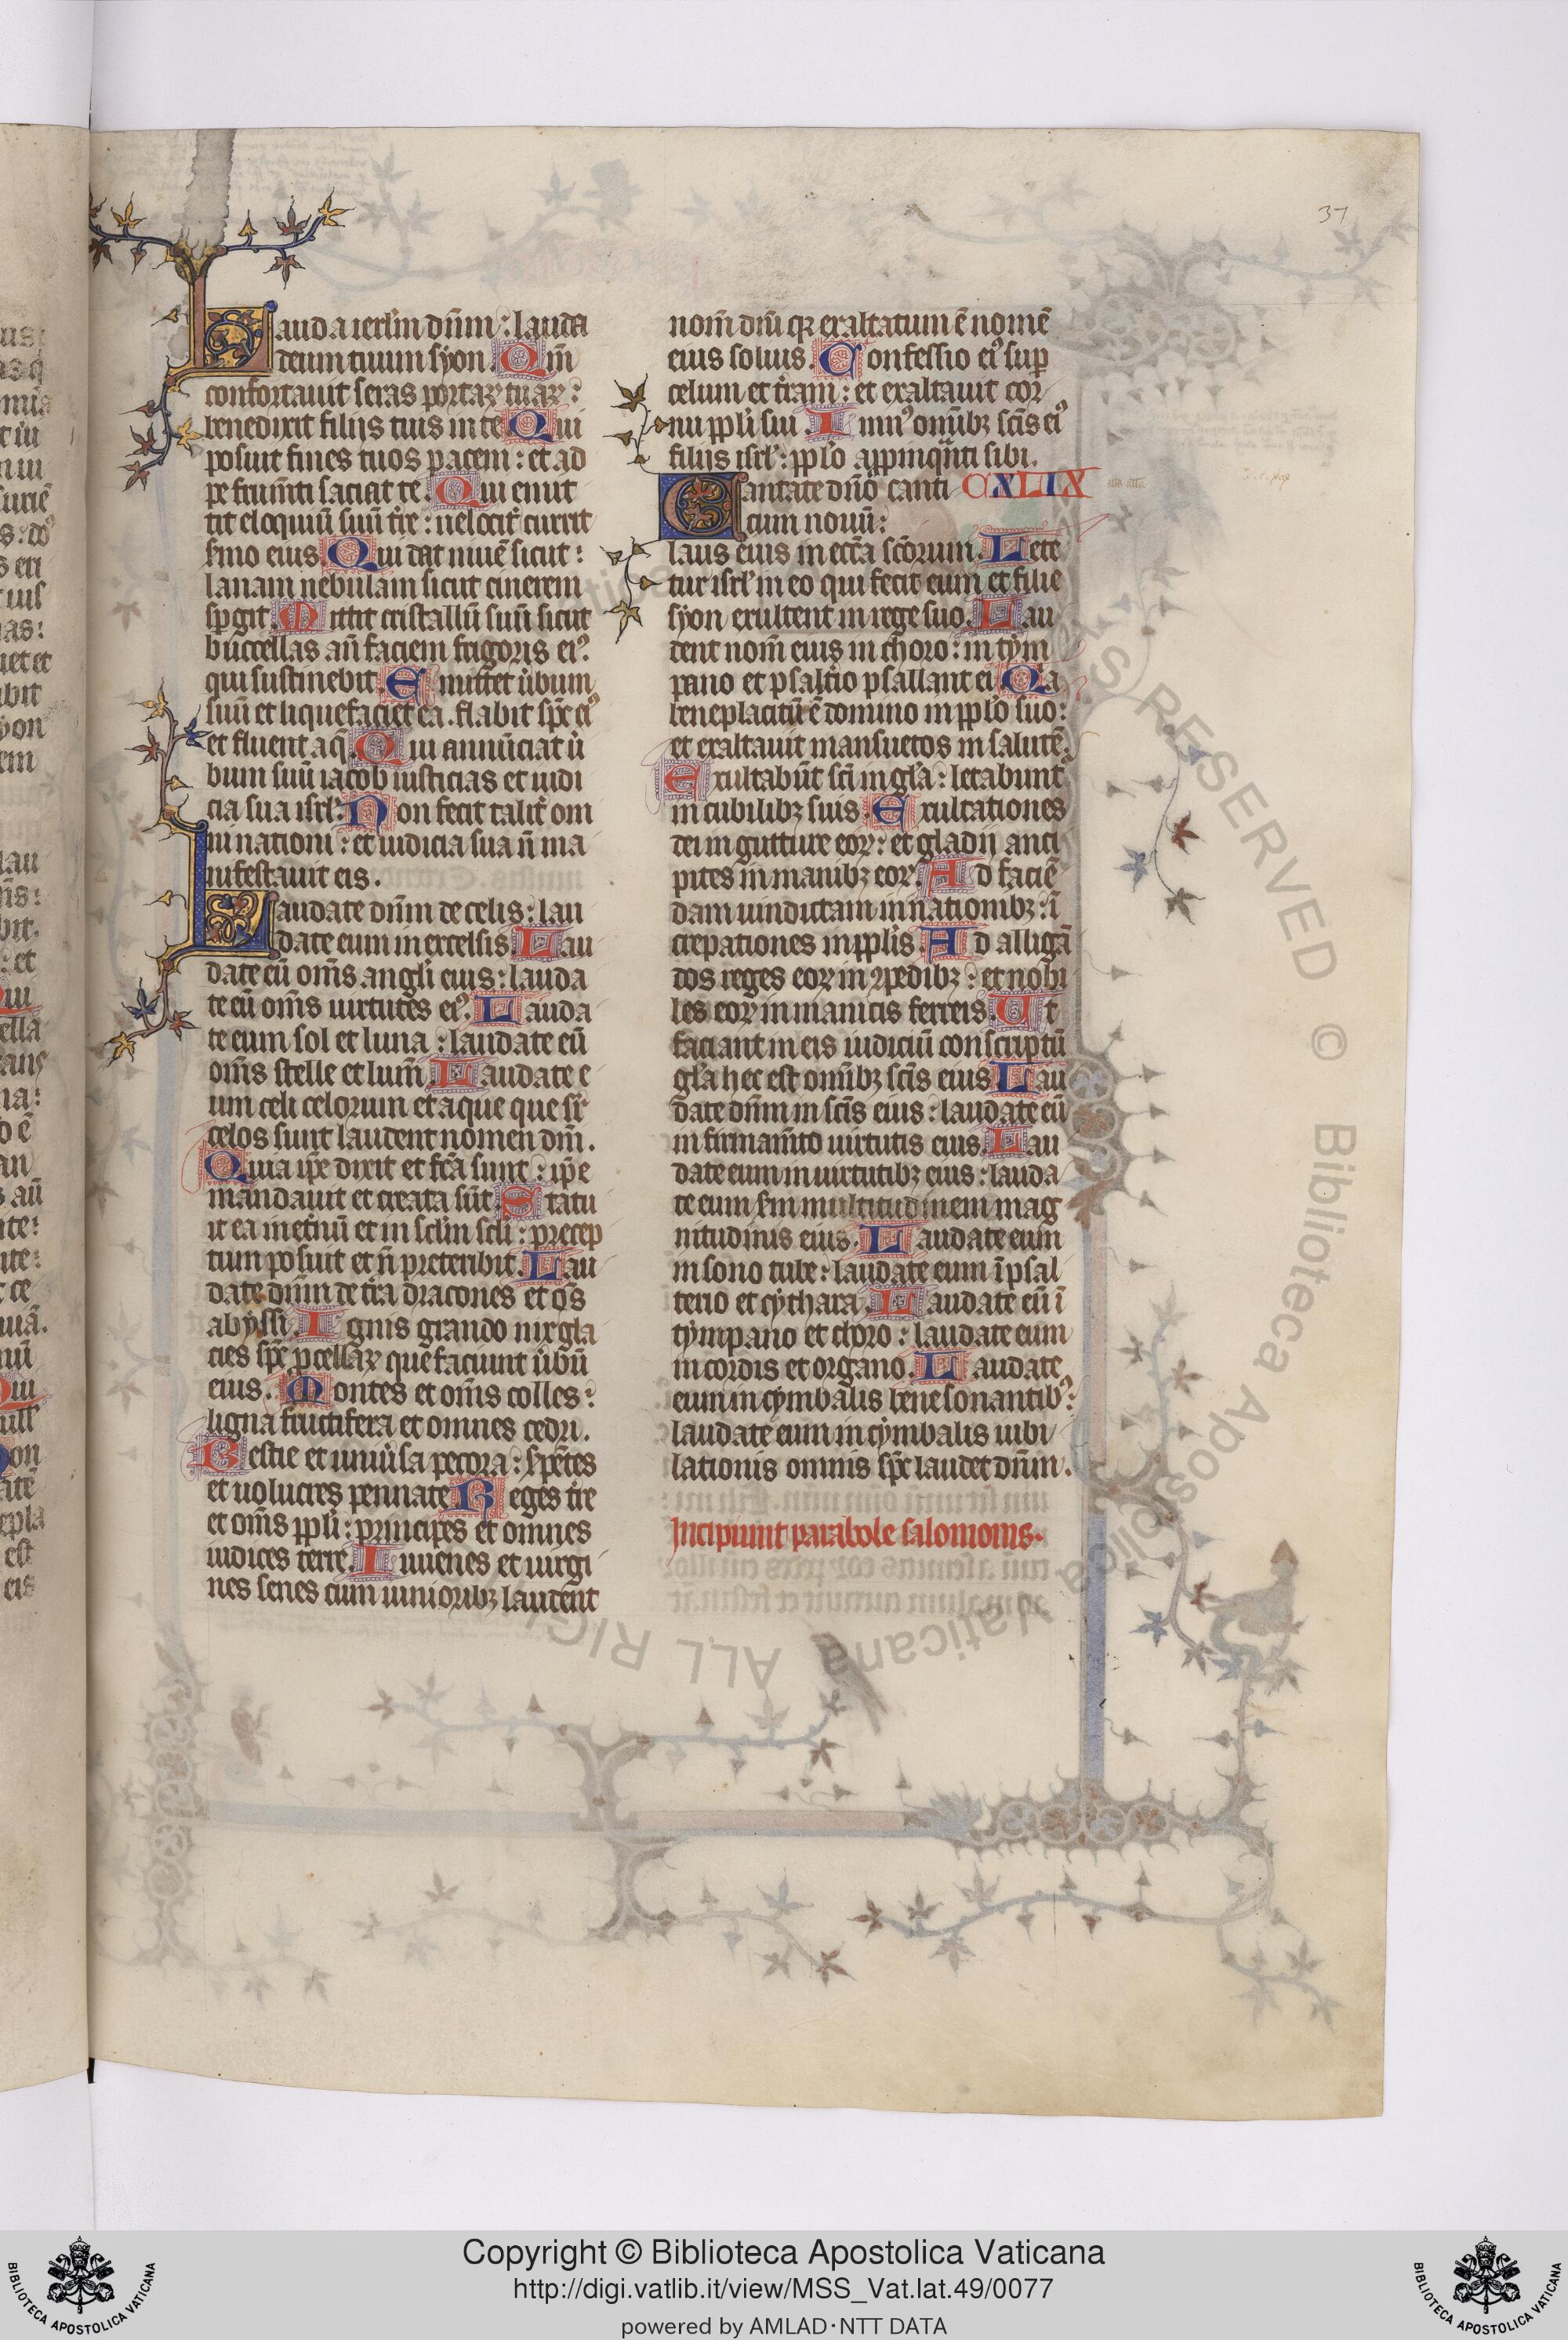 37
Lauda ierl̅m dn̅m: lauda
deum tuum syon. Qm̅
confortauit seras portaꝝ tuaꝝ:
benedixit filijs tuis in te. Qui
posuit fines tuos pacem: et ad
ipe frum̅ti saciat te. Qui emit
tit eloquiu̅ suu̅ tr̅e: uelocit̾ currit
s̾mo eius. Qui dat niue̅ sicut:
lanam nebulam sicut cinerem
sp̾git. Mittit cristallu̅ suu̅ sicut
buccellas an̅ faciem frigoris eiꝰ
qui sustinebit. Emittet u̾bum
suu̅ et liquefaciet ea. flabit sp̅c eiꝰ
et fluent aq̅. Qui annu̅ciat u̾
bum suu̅ iacob iusticias et iudi
cia sua isrl̅. Non fecit talit̾ om
ni nationi: et iudicia sua n̅ ma
nifestauit eis.
Laudate dn̅m de celis: lau
date eum in excelsis. Lau
date eu̅ om̅s angl̅i eius: lauda
te eu̅ om̅s uirtutes eiꝰ. Lauda
te eum sol et luna: laudate eu̅
om̅s stelle et lum̅. Laudate e
um celi celorum et aque que sr̅
celos sunt laudent nomen dn̅i.
Quia ip̅e dixit et fc̅a sunt: ip̅e
mandauit et creata su̅t. Statu
it ea in et̾nu̅ et in scl̅m scl̅i: precep
tum posuit et n̅ preteribit. Lau
date dn̅m de tr̅a dracones et om̅s
abyssi. Ignis grando nix gla
cies sp̅c ꝓcellaꝝ que faciunt u̾bu̅
eius. Montes et om̅s colles:
ligna fructifera et omnes cedri.
Bestie et uniu̾sa pecora: s̾pe̅tes
et uolucres pennate. Reges tr̅e
et om̅s ppl̅i: principes et omnes
iudices terre. Iuuenes et uirgi
nes senes cum iunioribꝫ laudent
nom̅ dn̅i qꝛ exaltatum e̅ nome̅
eius solius. Confessio eiꝰ sup̾
celum et tr̅am: et exaltauit cor
nu ppl̅i sui. Imnꝰ om̅ibꝫ sc̅is eiꝰ
filijs isrl̅: ppl̅o appinqua̅ti sibi.
Cantate dn̅o canti CXLIX
cum nouu̅:
laus eius in eccl̅a sc̅orum. Lete
tur isrl̅ in eo qui fecit eum et filie
syon exultent in rege suo. Lau
dent nom̅ eius in choro: in tym
pano et psalt̾io psallant ei. Qa
beneplacitu̅ e̅ domino in ppl̅o suo:
et exaltauit mansuetos in salute̅.
Exultabu̅t sc̅i in gl̅a: letabunt̾
in cubilibꝫ suis. Exultationes
dei in gutture eoꝝ: et gladij anci
pites in manibꝫ eoꝝ. Ad facie̅
dam uindictam in nationibꝫ: i̅
crepationes in ppl̅is. Ad alliga̅
dos reges eoꝝ in ꝯpedibꝫ: et nobi
les eoꝝ in manicis ferreis. Ut
faciant in eis iudiciu̅ conscriptu̅
gl̅a hec est om̅ibꝫ sc̅is eius. Lau
date dn̅m in sc̅is eius: laudate eu̅
in firmam̅to uirtutis eius. Lau
date eum in uirtutibꝫ eius: lauda
te eum sm̅ multitudinem mag
nitudinis eius. Laudate eum
in sono tube: laudate eum i̅ psal
terio et cythara. Laudate eu̅ i̅
tympano et choro: laudate eum
in cordis et organo. Laudate
eum in cymbalis bene sonantibꝰ:
laudate eum in cymbalis iubi
lationis omnis sp̅c laudet dn̅m.
Incipiunt parabole salomonis.
Biblioteca Apostolica Vaticana ALL RIGHTS RESERVED ©
Copyright © Biblioteca Apostolica Vaticana
http://digi.vatlib.it/view/MSS_Vat.lat.49/0077
powered by AMLAD·NTT DATA
BIBLIOTECA APOSTOLICA VATICANA
BIBLIOTECA APOSTOLICA VATICANA